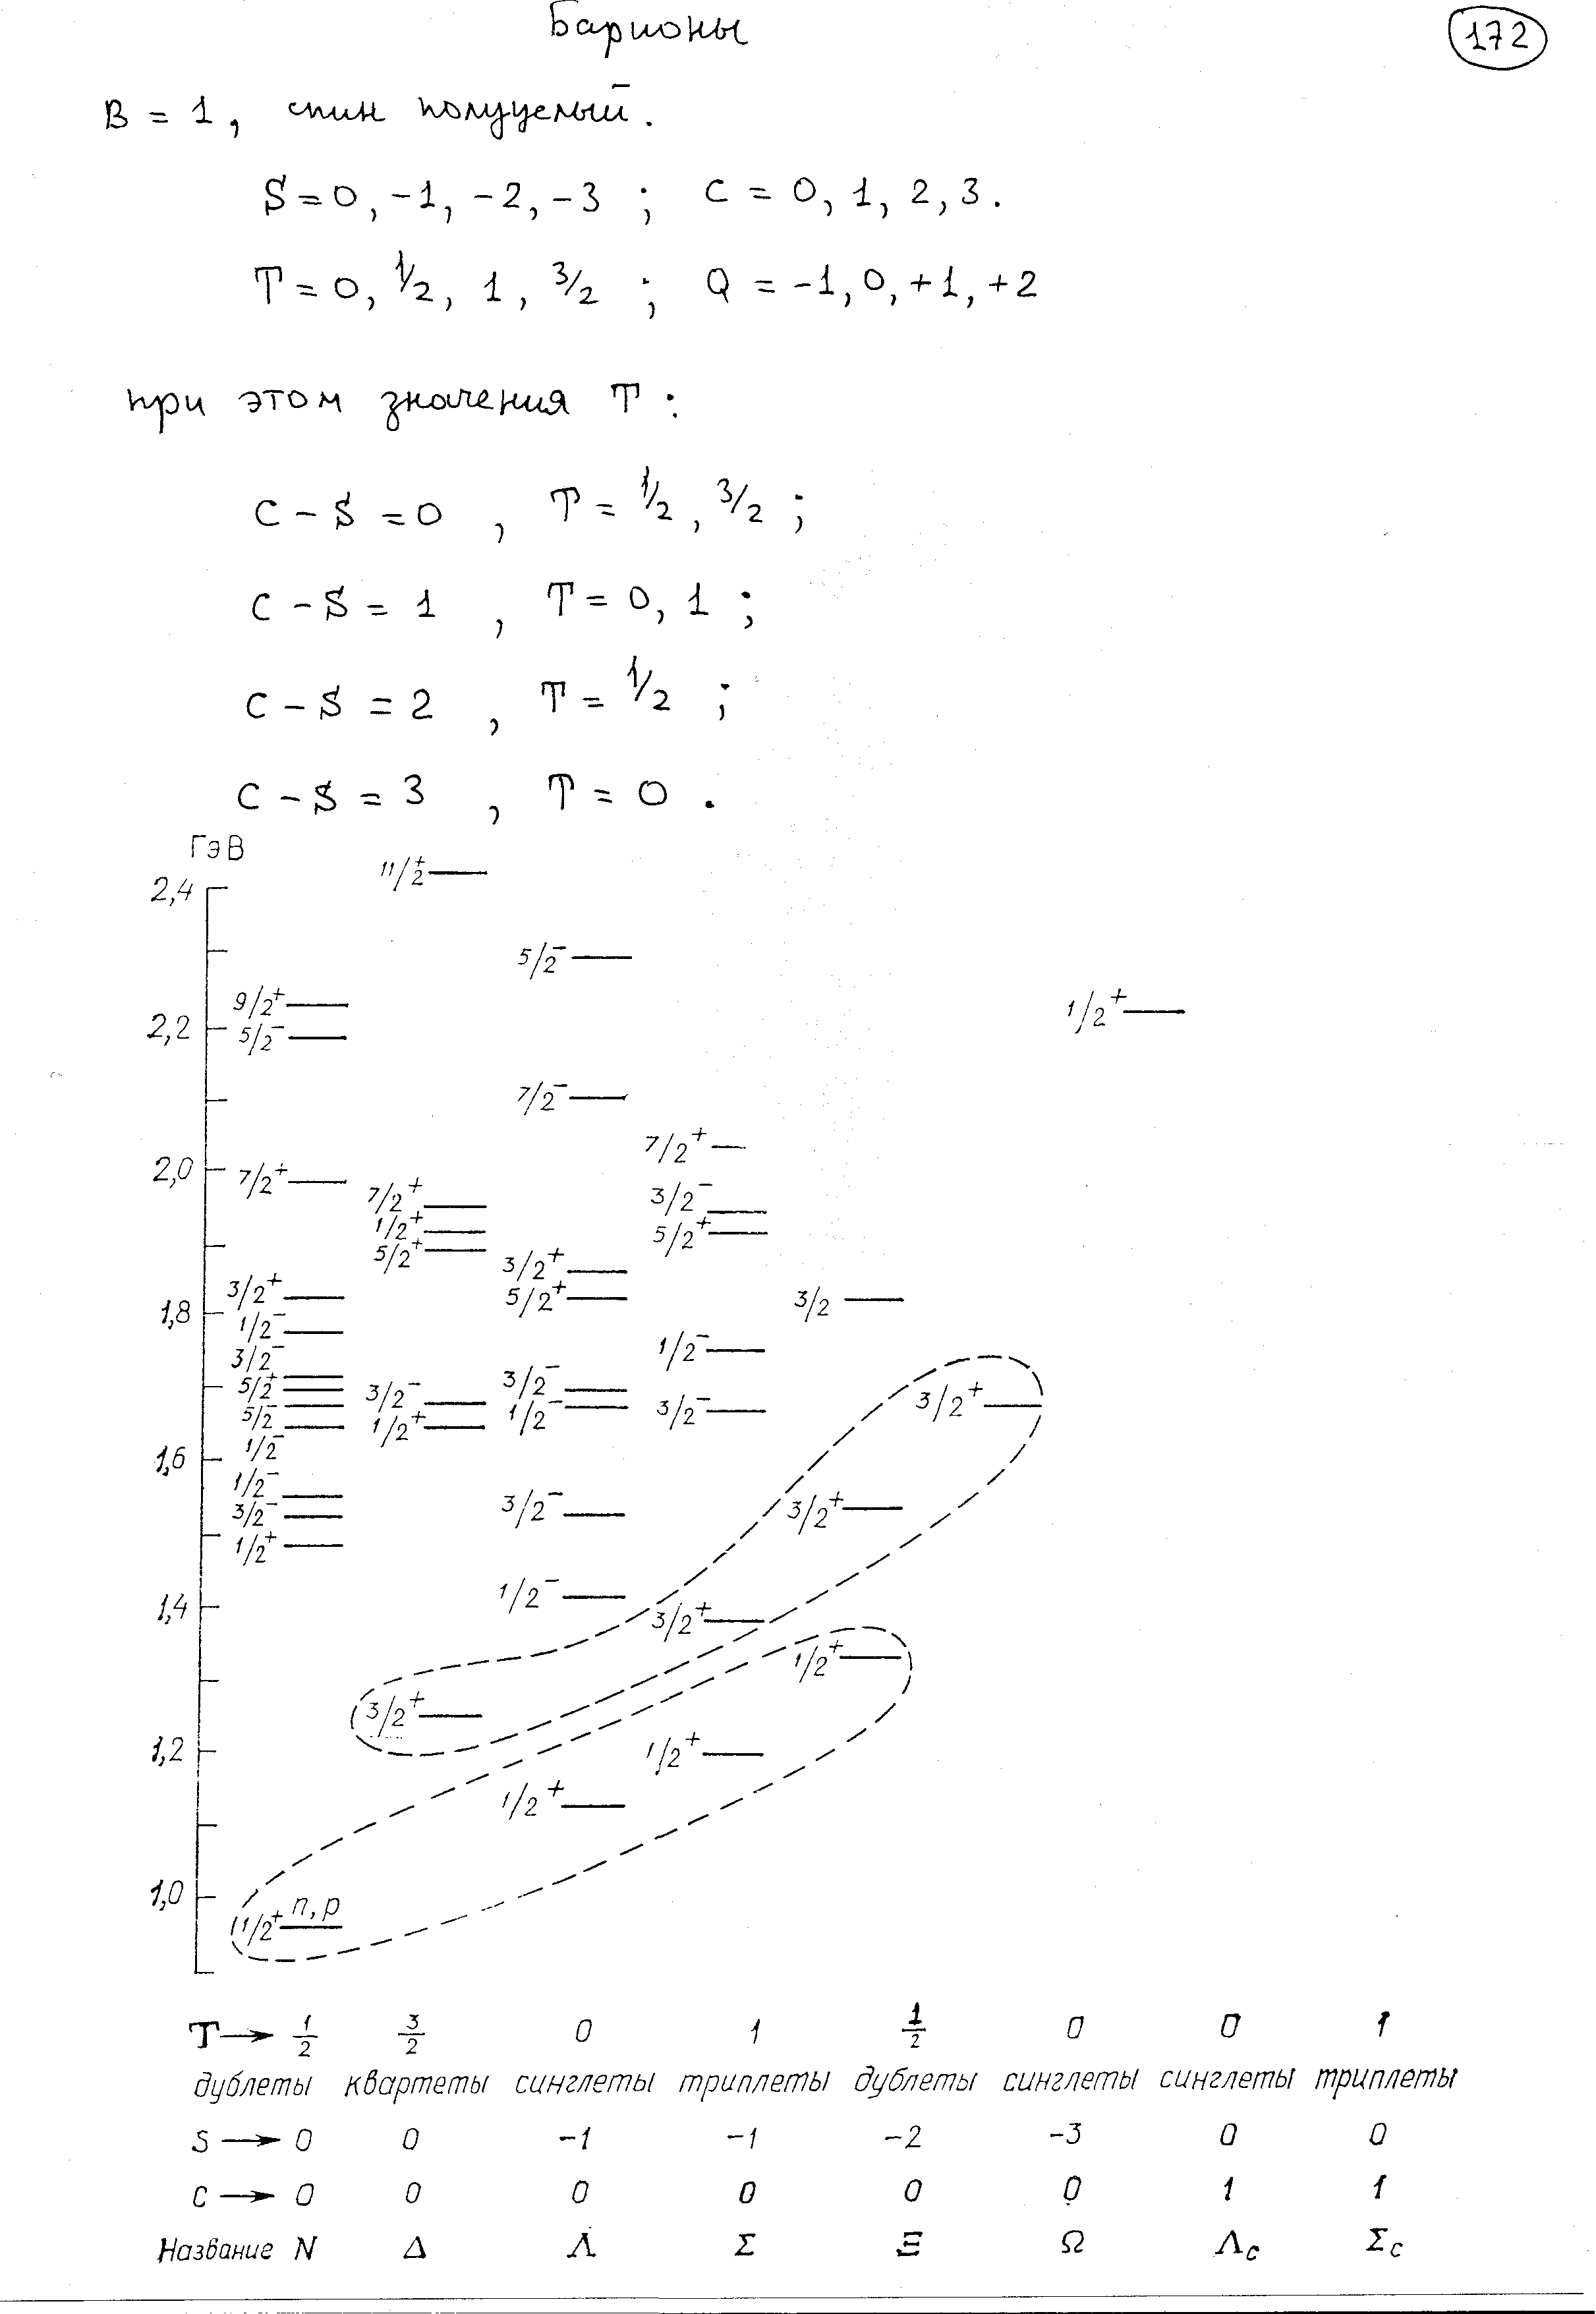 Барионы
172
B = 1, спин полуцелый.
S = 0, -1, -2, -3 ; C = 0, 1, 2, 3.
T = 0, 1/2, 1, 3/2 ; Q = -1, 0, +1, +2
при этом значения T :
C - S = 0 , T = 1/2, 3/2 ;
C - S = 1 , T = 0, 1 ;
C - S = 2 , T = 1/2 ;
C - S = 3 , T = 0 .
ГэВ
11/2+
2,4
5/2-
9/2+
1/2+
2,2 5/2-
7/2-
7/2+
2,0 7/2+
7/2+ 3/2-
1/2+ 5/2+
5/2+ 3/2+
3/2+ 5/2+ 3/2
1,8 1/2- 1/2-
3/2-
5/2+ 3/2- 3/2- 3/2+
5/2- 1/2+ 1/2- 3/2-
1,6 1/2-
1/2-
3/2- 3/2- 3/2+
1/2+
1/2-
1,4 3/2+
1/2+
3/2+
1,2 1/2+
1/2+
1,0
1/2+ n, p
T → 1/2 3/2 0 1 1/2 0 0 1
дублеты квартеты синглеты триплеты дублеты синглеты синглеты триплеты
S → 0 0 -1 -1 -2 -3 0 0
C → 0 0 0 0 0 0 1 1
Название N Δ Λ Σ Ξ Ω Λc Σc